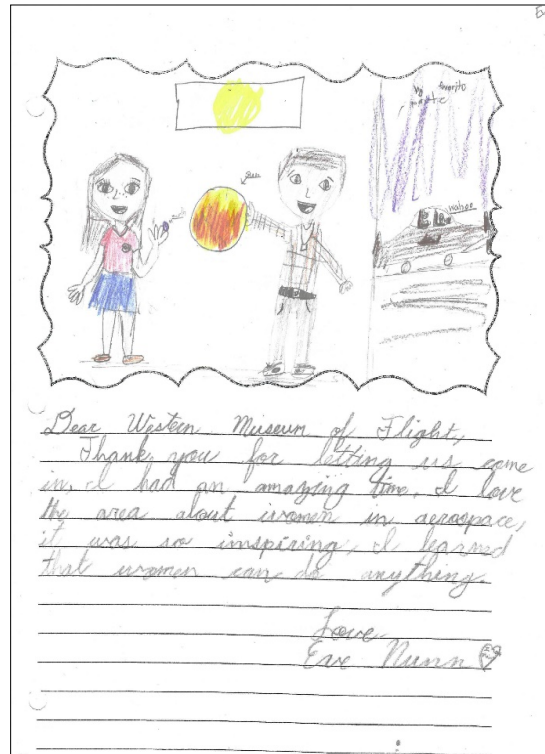 My favorito
Sun
wahoo
Dear Western Museum of Flight,
Thank you for letting us come
in. I had an amazing time. I love
the area about women in aerospace,
it was so inspiring, I learned
that women can do anything.
Love
Eve Nunn